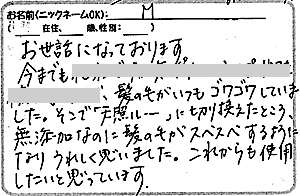 お名前(ニックネームOK): M
( 在住、 歳、性別: )
お世話になっております
今までも
、髪の毛がいつもゴワゴワしていま
した。そこで「天照ルー 」に切り換えたところ、
無添加なのに髪の毛がスベスベするように
なりうれしく思いました。これからも使用
したいと思っています